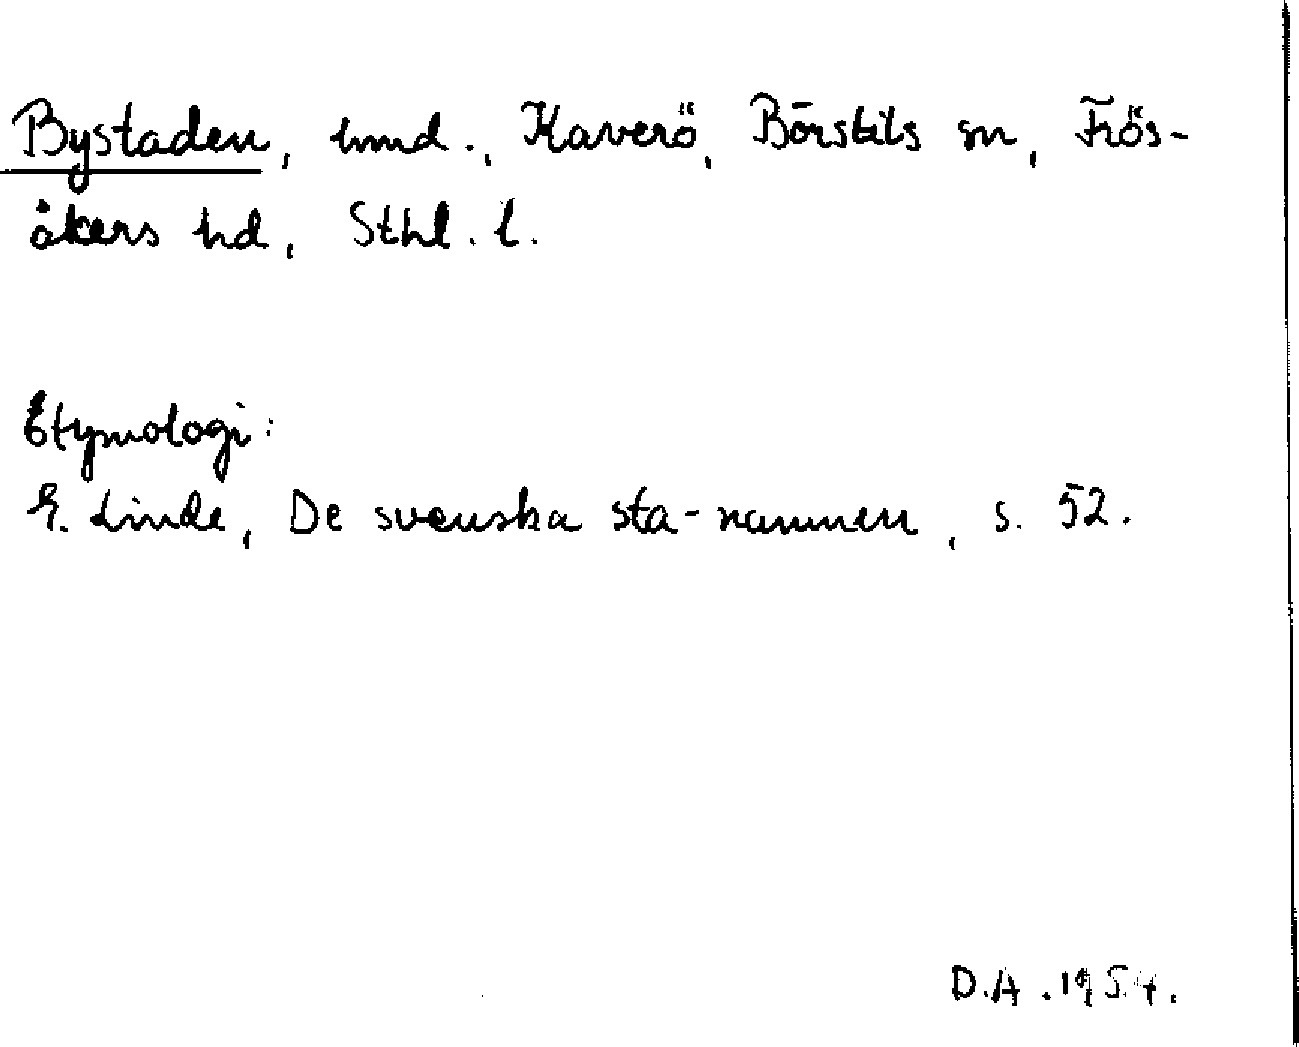 Bystaden, hmd., Kaverö, Börstils sn, Frös-
åkers hd, Sthl. l.
Etymologi:
G. Linde, De svenska sta-namnen, s. 52.
D.A. 1954.